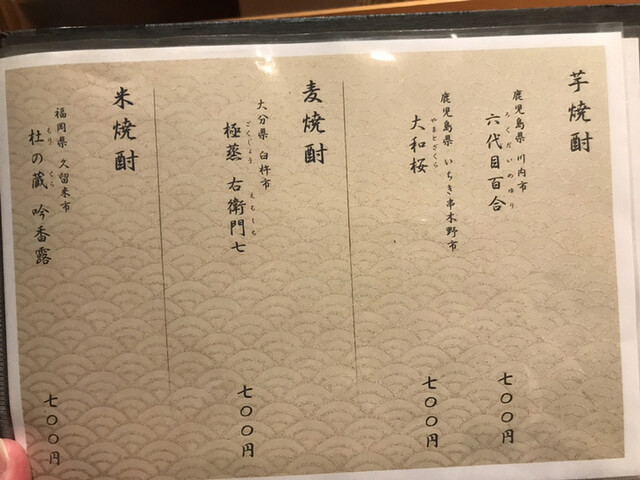 芋焼酎
鹿児島県 川内市
ろくだいめゆり
六代目百合
七〇〇円
鹿児島県 いちき串木野市
やまとざくら
大和桜
七〇〇円
麦焼酎
大分県 臼杵市
ごくじょう えもしち
極蒸 右衛門七
七〇〇円
米焼酎
福岡県 久留米市
もり くら
杜の蔵 吟香露
七〇〇円